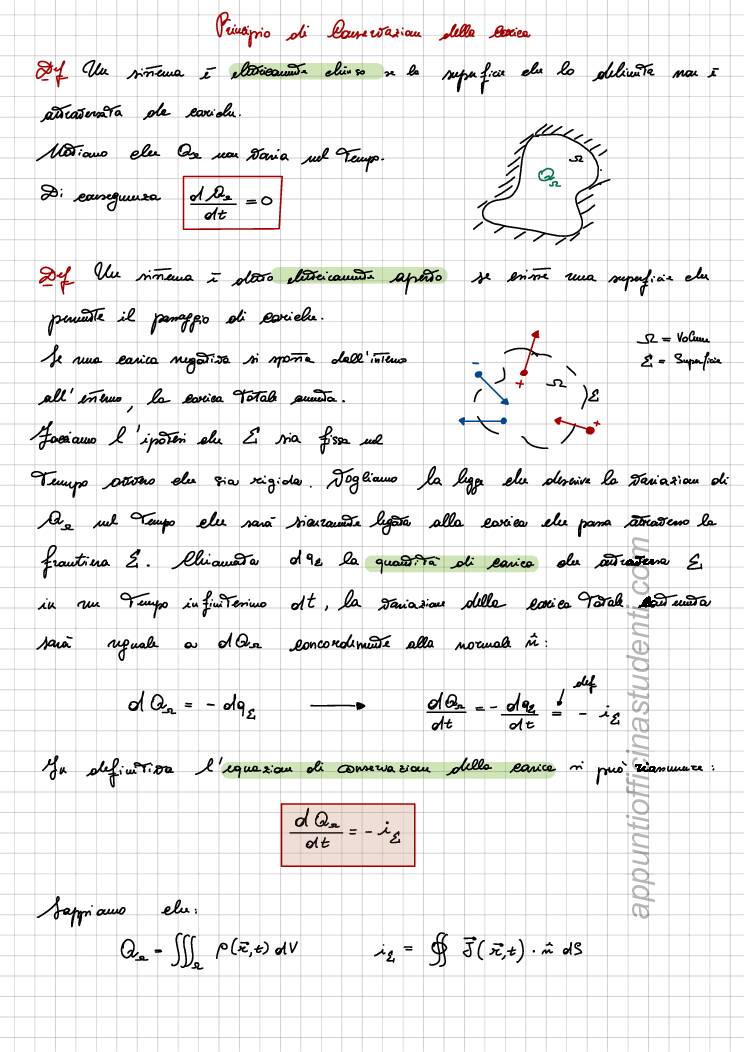 Principio di Conservazione della Carica
Def Un sistema è elettricamente chiuso se la superficie che lo delimita non è
attraversata da cariche.
Notiamo che Q_Ω non varia nel tempo.
Di conseguenza dQ_Ω/dt = 0
Ω
Q_Ω
Def Un sistema è detto elettricamente aperto se esiste una superficie che
permette il passaggio di cariche.
Ω = Volume
Σ = Superficie
Se una carica negativa si sposta dall'interno
all'esterno, la carica totale aumenta.
- + Ω Σ +
Facciamo l'ipotesi che Σ sia fissa nel
tempo ovvero che sia rigida. Vogliamo la legge che descrive la variazione di
Q_Ω nel tempo che sarà sicuramente legata alla carica che passa attraverso la
frontiera Σ. Chiamata dq_Σ la quantità di carica che attraversa Σ
in un tempo infinitesimo dt, la variazione della carica totale contenuta
sarà uguale a dQ_Ω concordemente alla normale n̂:
dQ_Ω = - dq_Σ → dQ_Ω/dt = - dq_Σ/dt = - i_Σ
def
In definitiva l'equazione di conservazione della carica si può riassumere:
dQ_Ω/dt = - i_Σ
Sappiamo che:
Q_Ω = ∭_Ω ρ(r⃗,t) dV i_Σ = ∯ J⃗(r⃗,t) · n̂ dS
appuntiofficinastudenti.com